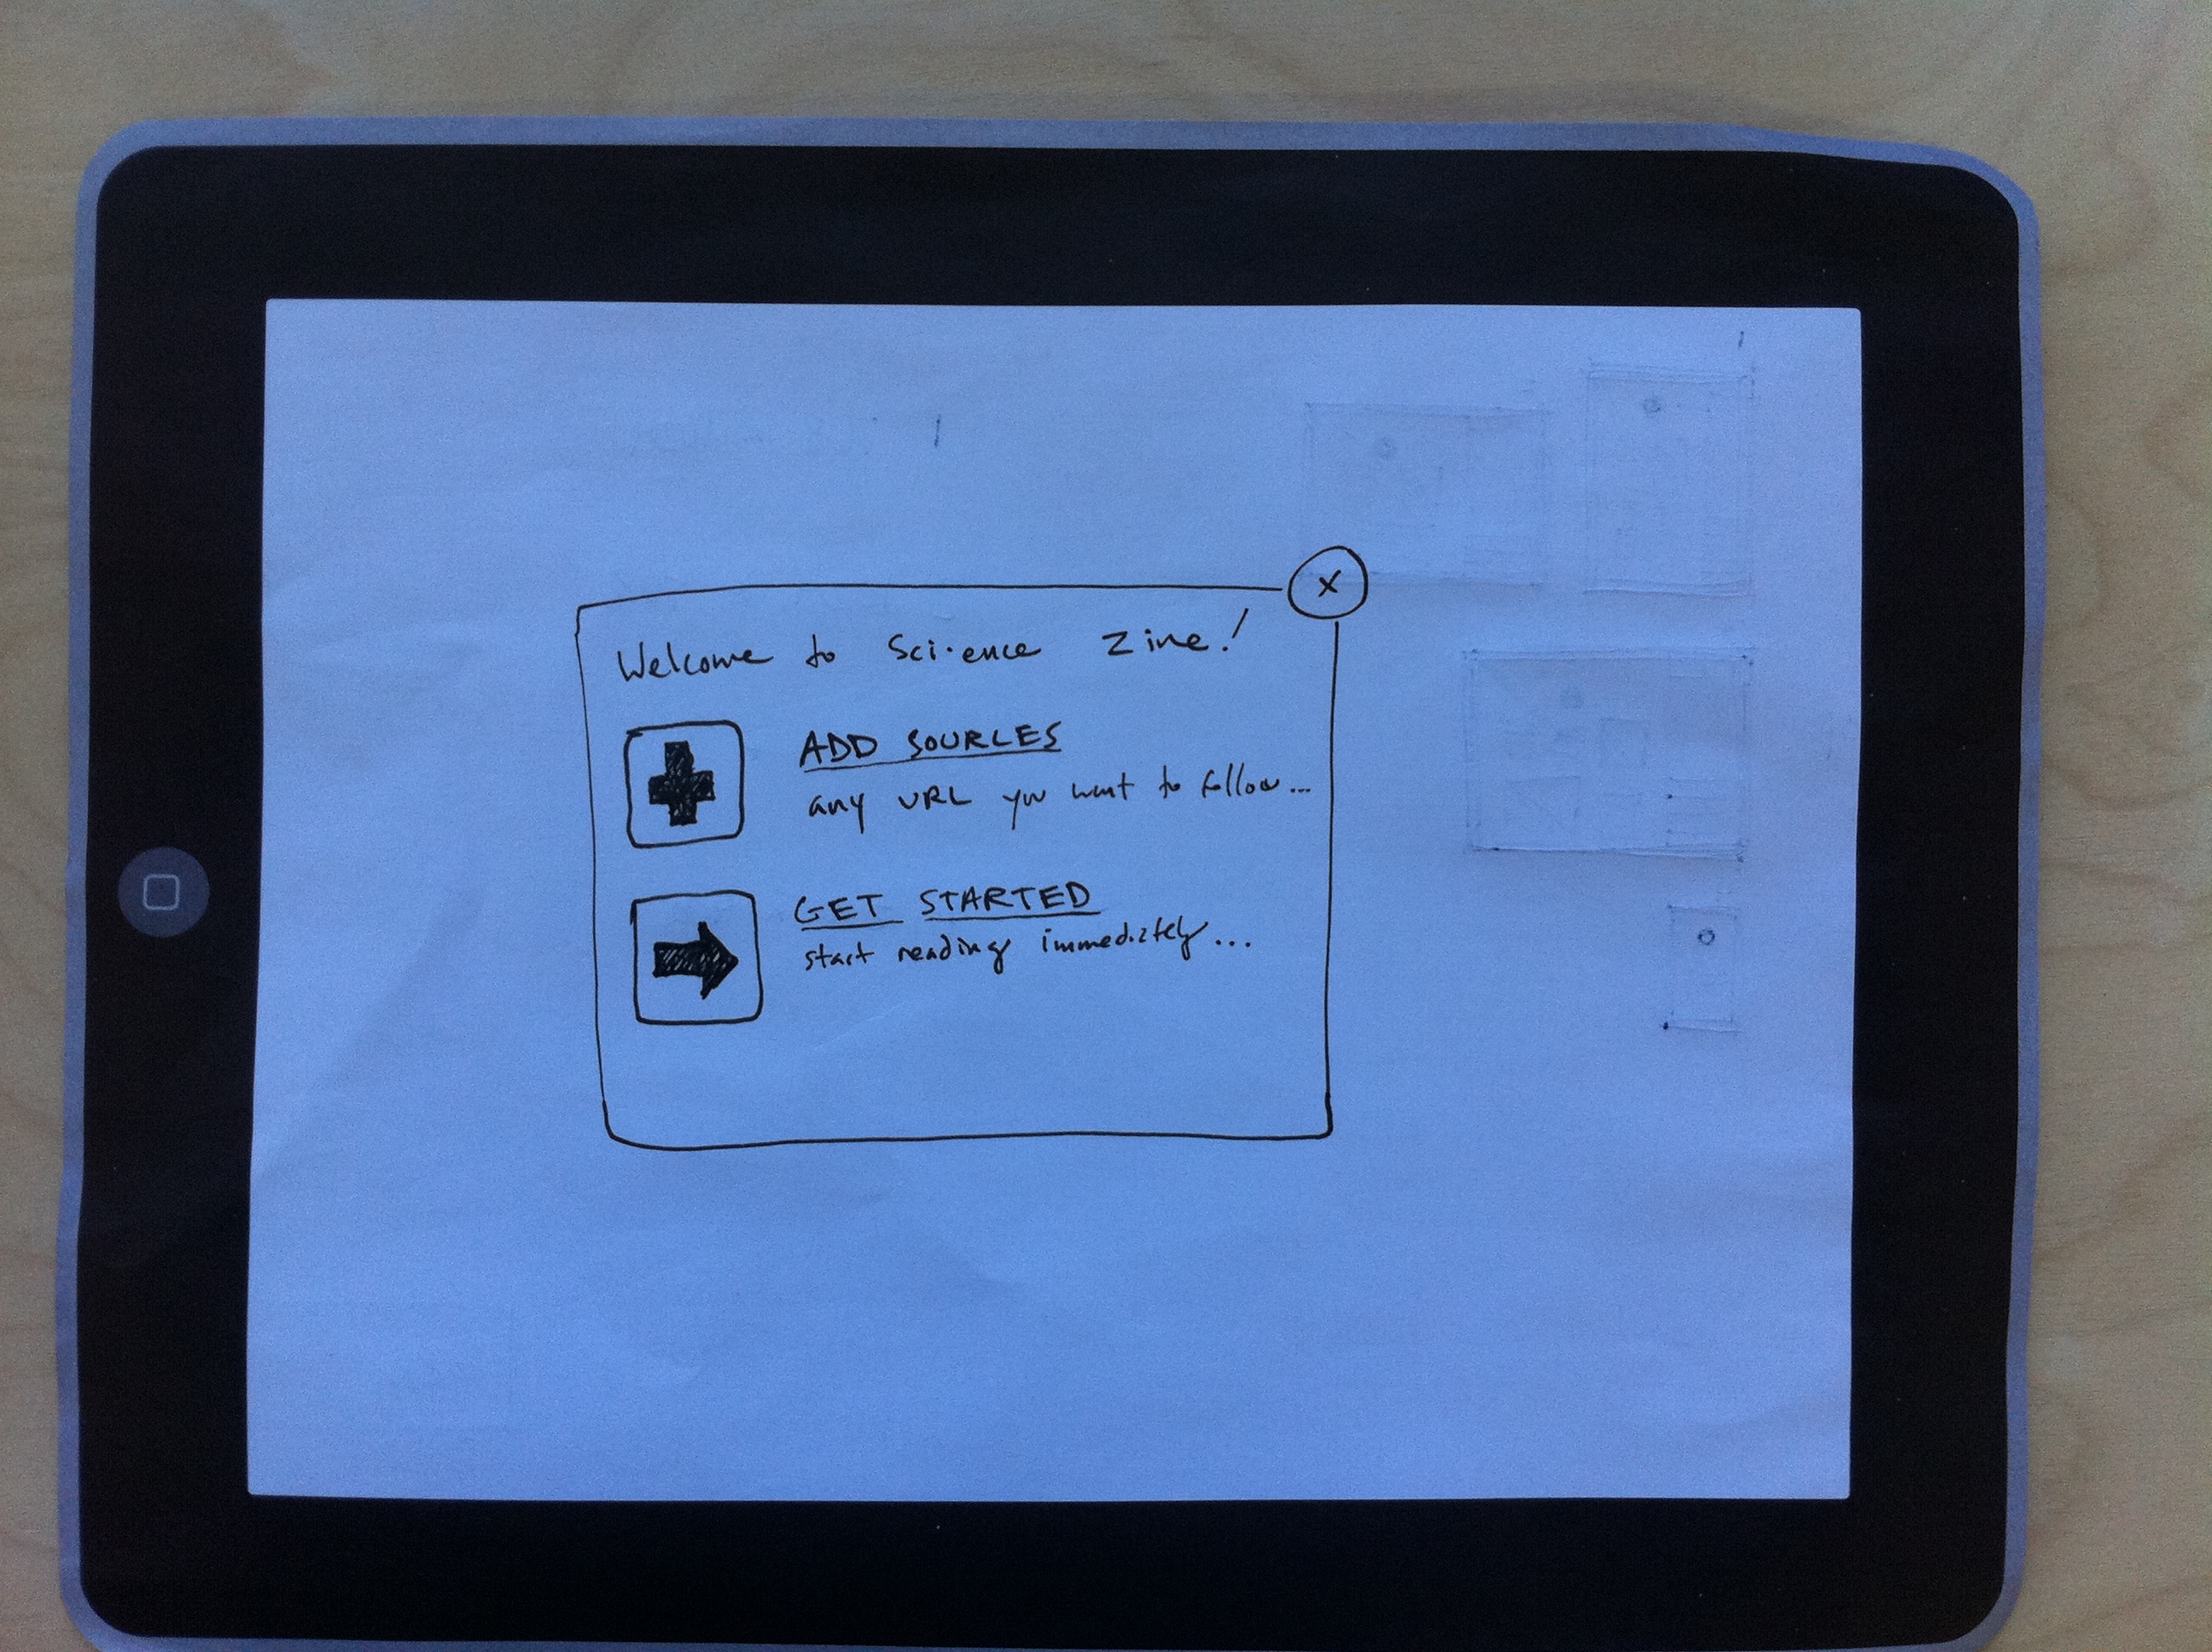 x
Welcome to Sci.ence Zine!
ADD SOURCES
any URL you want to follow...
GET STARTED
start reading immediately...